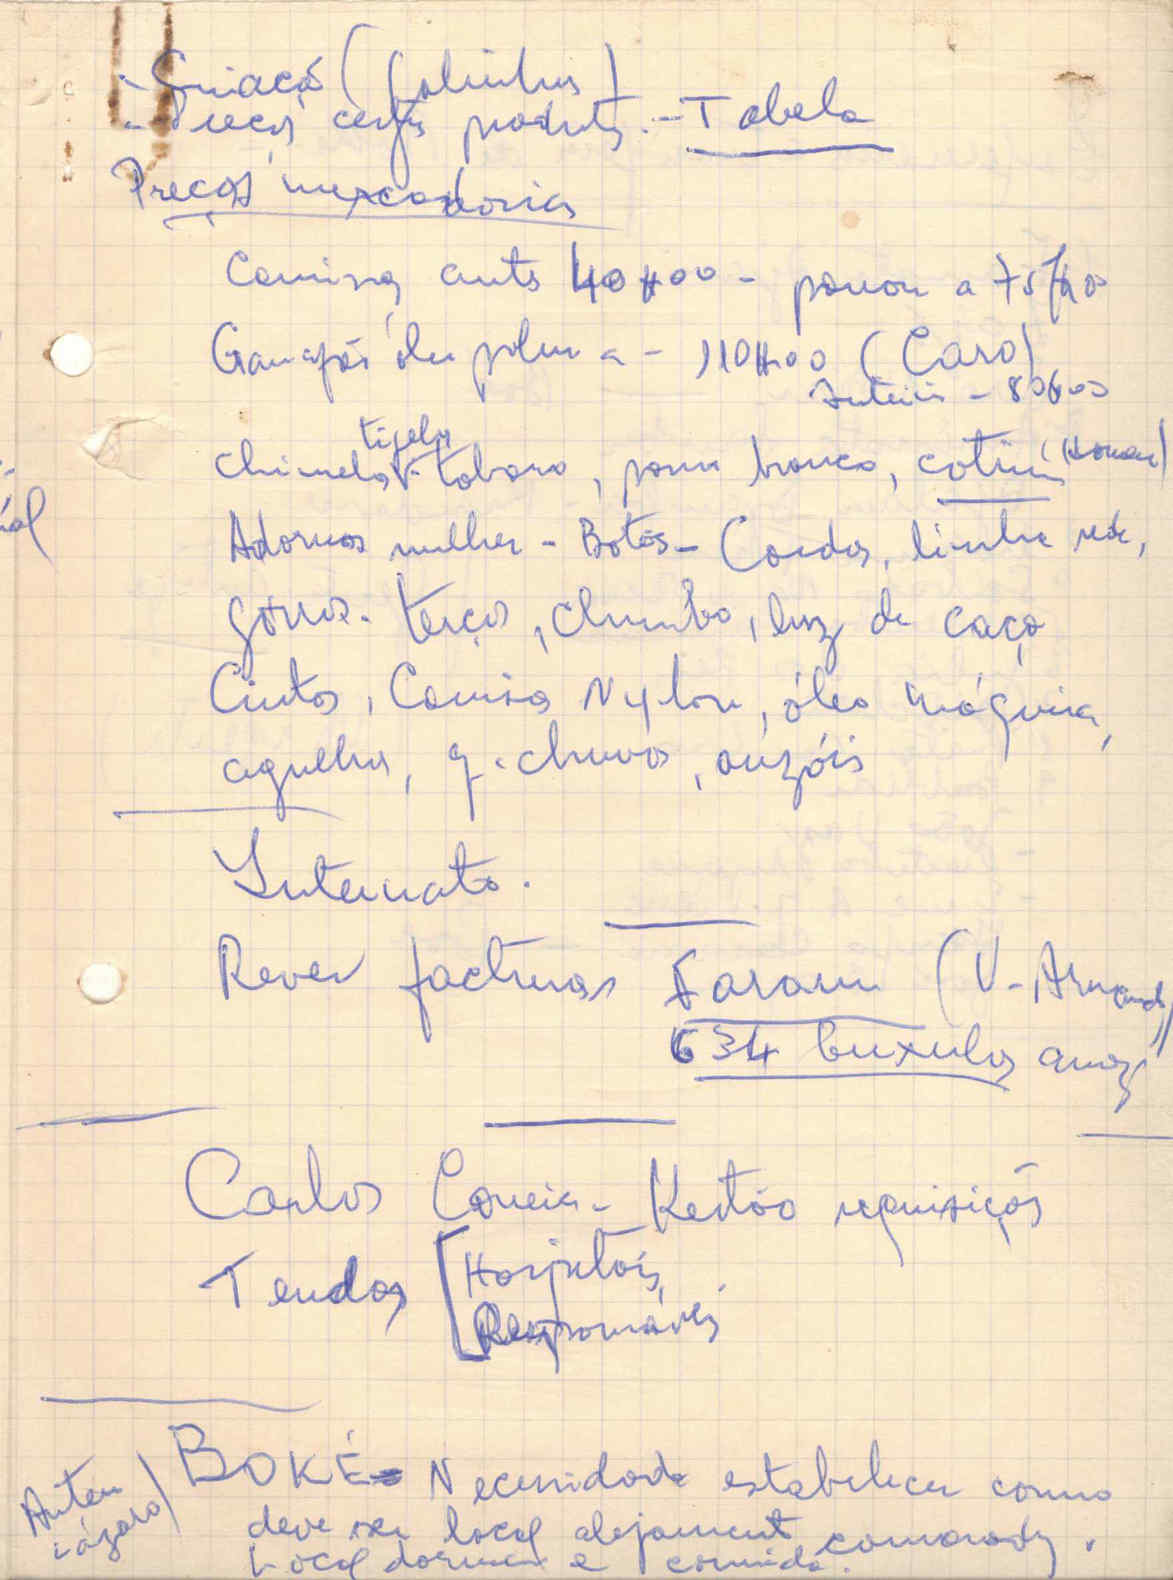 - Criação (Galinhas)
- Preços certos produtos. - Tabela
Preços mercadorias
Camisas, antes 40$00 - passou a 75$00
Garrafões óleo palma a - 110$00 (Caro)
Anterior - 80$00
tigelas
chinelos - tabaco, pano branco, cotim (Homem)
Adornos mulher - Botões - Cordas, linha rede,
gorros. terços, chumbo, luz de caça
Cintos, Camisas Nylon, óleo máquina,
agulhas, g. chuvas, anzóis
Internato.
Rever facturas Farim (V- Armando)
634 buxulos arroz
Carlos Correia - Questão requisições
Tendas [Hospitais,
Responsáveis
BOKÉ - Necessidade estabelecer como
deve ser local alojamento camaradas.
Local dormir e comida.